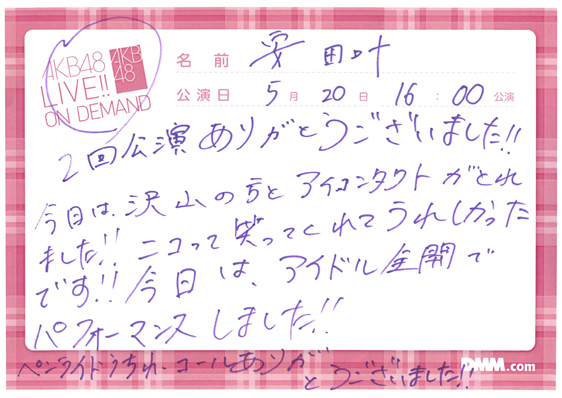 AKB48
LIVE!!
ON DEMAND
AKB
48
名前 安田叶
公演日 5月20日 16:00公演
2回公演ありがとうございました!!
今日は、沢山の方とアイコンタクトがとれ
ました!! ニコって笑ってくれてうれしかった
です!! 今日は、アイドル全開で
パフォーマンスしました!!
ペンライト うちわ、コールありが
とうございました!!
DMM.com